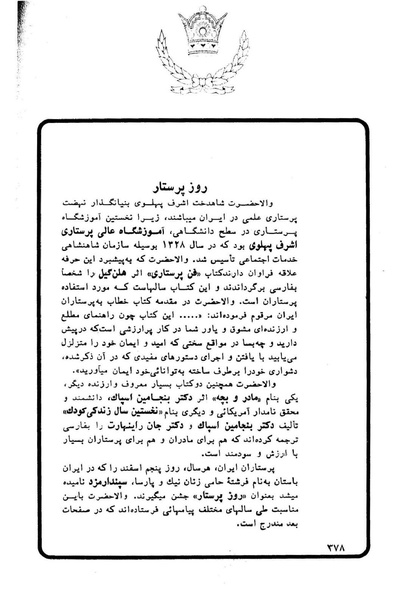 روز پرستار
والاحضرت شاهدخت اشرف پهلوی بنیانگذار نهضت
پرستاری علمی در ایران میباشند، زیرا نخستین آموزشگاه
پرستاری در سطح دانشگاهی، آموزشگاه عالی پرستاری
اشرف پهلوی بود که در سال ۱۳۲۸ بوسیله سازمان شاهنشاهی
خدمات اجتماعی تأسیس شد. والاحضرت که به‌پیشبرد این حرفه
علاقه فراوان دارندکتاب «فن پرستاری» اثر هلن‌گیل را شخصاً
بفارسی برگرداندند و این کتاب سالهاست که مورد استفاده
پرستاران است. والاحضرت در مقدمه کتاب خطاب به‌پرستاران
ایران مرقوم فرموده‌اند: «..... این کتاب چون راهنمای مطلع
و ارزنده‌ای مشوق و یاور شما در کار پرارزشی است‌که درپیش
دارید و چه‌بسا در مواقع سختی که امید و ایمان خود را متزلزل
می‌یابید با یافتن و اجرای دستورهای مفیدی که در آن ذکرشده،
دشواری خودرا برطرف ساخته به‌توانائی‌خود ایمان میآورید».
والاحضرت همچنین دوکتاب بسیار معروف وارزنده دیگر،
یکی بنام «مادر و بچه» اثر دکتر بنجامین اسپاك، دانشمند و
محقق نامدار آمریکائی و دیگری بنام «نخستین سال زندگی‌کودك»
تألیف دکتر بنجامین اسپاك و دکتر جان راینهارت را بفارسی
ترجمه کرده‌اند که هم برای مادران و هم برای پرستاران بسیار
با ارزش و سودمند است.
پرستاران ایران، هرسال، روز پنجم اسفند را که در ایران
باستان به‌نام فرشتهٔ حامی زنان نیك و پارسا، سپندارمزد نامیده
میشد بعنوان «روز پرستار» جشن میگیرند. والاحضرت باین
مناسبت طی سالهای مختلف پیامهائی فرستاده‌اند که در صفحات
بعد مندرج است.
۳۷۸